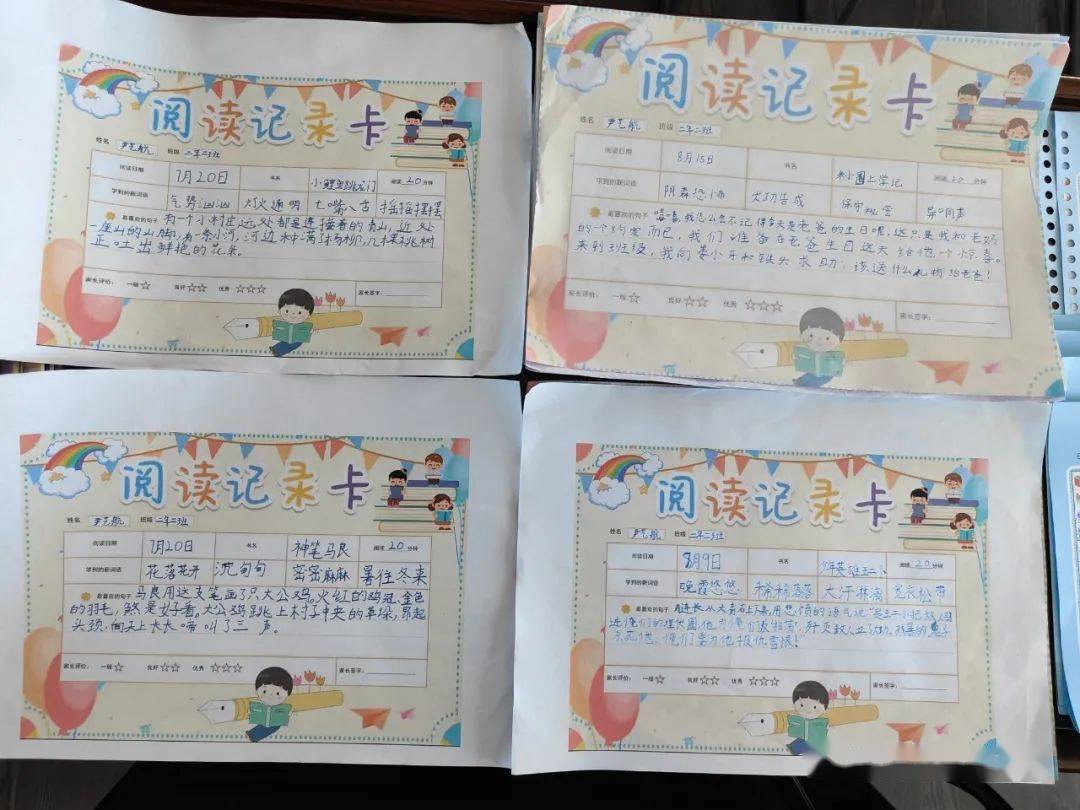 阅读记录卡
姓名 尹艺航 班级 二年二班
阅读日期 7月20日 书名 小鲤鱼跳龙门 阅读 20 分钟
学到的新词语 气势汹汹 灯火通明 七嘴八舌 摇摇摆摆
最喜欢的句子 有一个小村庄远处都是连接着的青山，近处
一座山的山脚，有一条小河，河边种满 桃树
正吐出鲜艳的花朵。
家长评价： 一般☆ 良好☆☆ 优秀☆☆☆ 家长签字：
阅读记录卡
姓名 尹艺航 班级 二年二班
阅读日期 8月15日 书名 米小圈上学记 阅读 20 分钟
学到的新词语 阴森恐怖 大功告成 保守秘密 异口同声
最喜欢的句子 嘻嘻，我怎么会不记得今天是老爸的生日呢，这只是我和老妈
的一个约定而已，我们准备在老爸生日这天给他一个惊喜。
来到班级，我向姜小牙和铁头求助，该送什么礼物给老爸！
家长评价： 一般☆ 良好☆☆ 优秀☆☆☆ 家长签字：
阅读记录卡
姓名 尹艺航 班级 二年二班
阅读日期 7月20日 书名 神笔马良 阅读 20 分钟
学到的新词语 花落花开 沉甸甸 密密麻麻 暑往冬来
最喜欢的句子 马良用这支笔画了只大公鸡，火红的鸡冠，金色
的羽毛，煞是好看，大公鸡跳上村子中央的草垛，昂起
头颈，向天上长长 啼叫了三声。
家长评价： 一般☆ 良好☆☆ 优秀☆☆☆ 家长签字：
阅读记录卡
姓名 尹艺航 班级 二年二班
阅读日期 8月9日 书名 少年英雄王二小 阅读 20 分钟
学到的新词语 晚霞悠悠 稀稀落落 大汗淋漓 宽衣松带
最喜欢的句子 连长从大青石上 用悲愤的语气说“是王二小把敌人引
进俺们的埋伏圈，他为俺们 歼灭敌人立了功，
死他，俺们要为他报仇雪恨！
家长评价： 一般☆ 良好☆☆ 优秀☆☆☆ 家长签字：